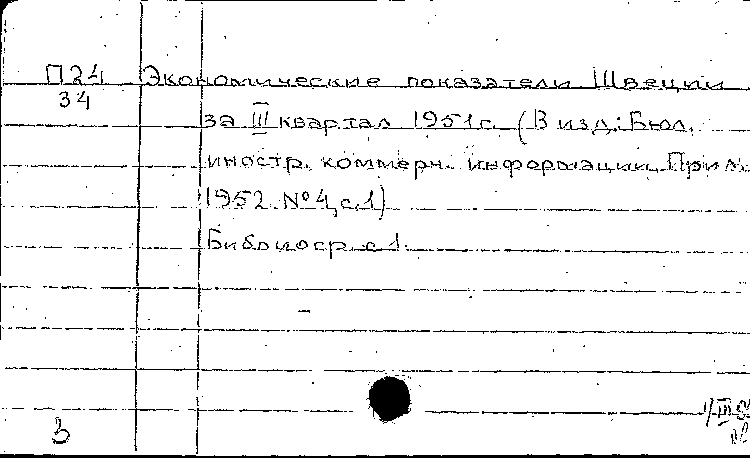 П24 Экономические показатели Швеции
34 за III квартал 1951г. (В изд.: Бюл.
иностр. коммерч. информации. Прил.
1952. №4, с.1)
Библиогр. с 1.